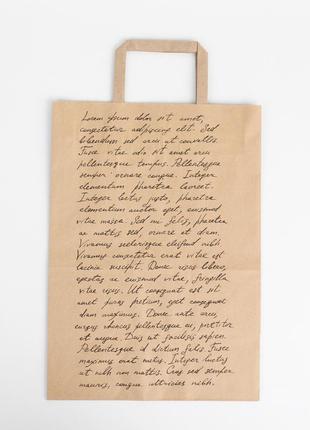 Lorem ipsum dolor sit amet,
consectetur adipiscing elit. Sed
bibendum sed arcu ut convallis.
Fusce vitae odio sit amet arcu
pellentesque tempus. Pellentesque
semper ornare congue. Integer
elementum pharetra laoreet.
Integer lectus justo, pharetra
elementum auctor eget, euismod
vitae massa. Sed mi felis, pharetra
ac mattis sed, ornare at diam.
Vivamus scelerisque eleifend nibh.
Vivamus consectetur erat vitae est
lacinia suscipit. Donec risus libero,
egestas ac euismod vitae, fringilla
vitae risus. Ut consequat est sit
amet purus pretium, eget consequat
diam maximus. Donec ante arcu,
cursus rhoncus pellentesque eu, porttitor
et augue. Duis ut facilisis sapien.
Pellentesque id dictum felis. Fusce
maximus erat metus. Integer luctus
ut nibh non mattis. Cras sed semper
mauris, congue ultricies nibh.